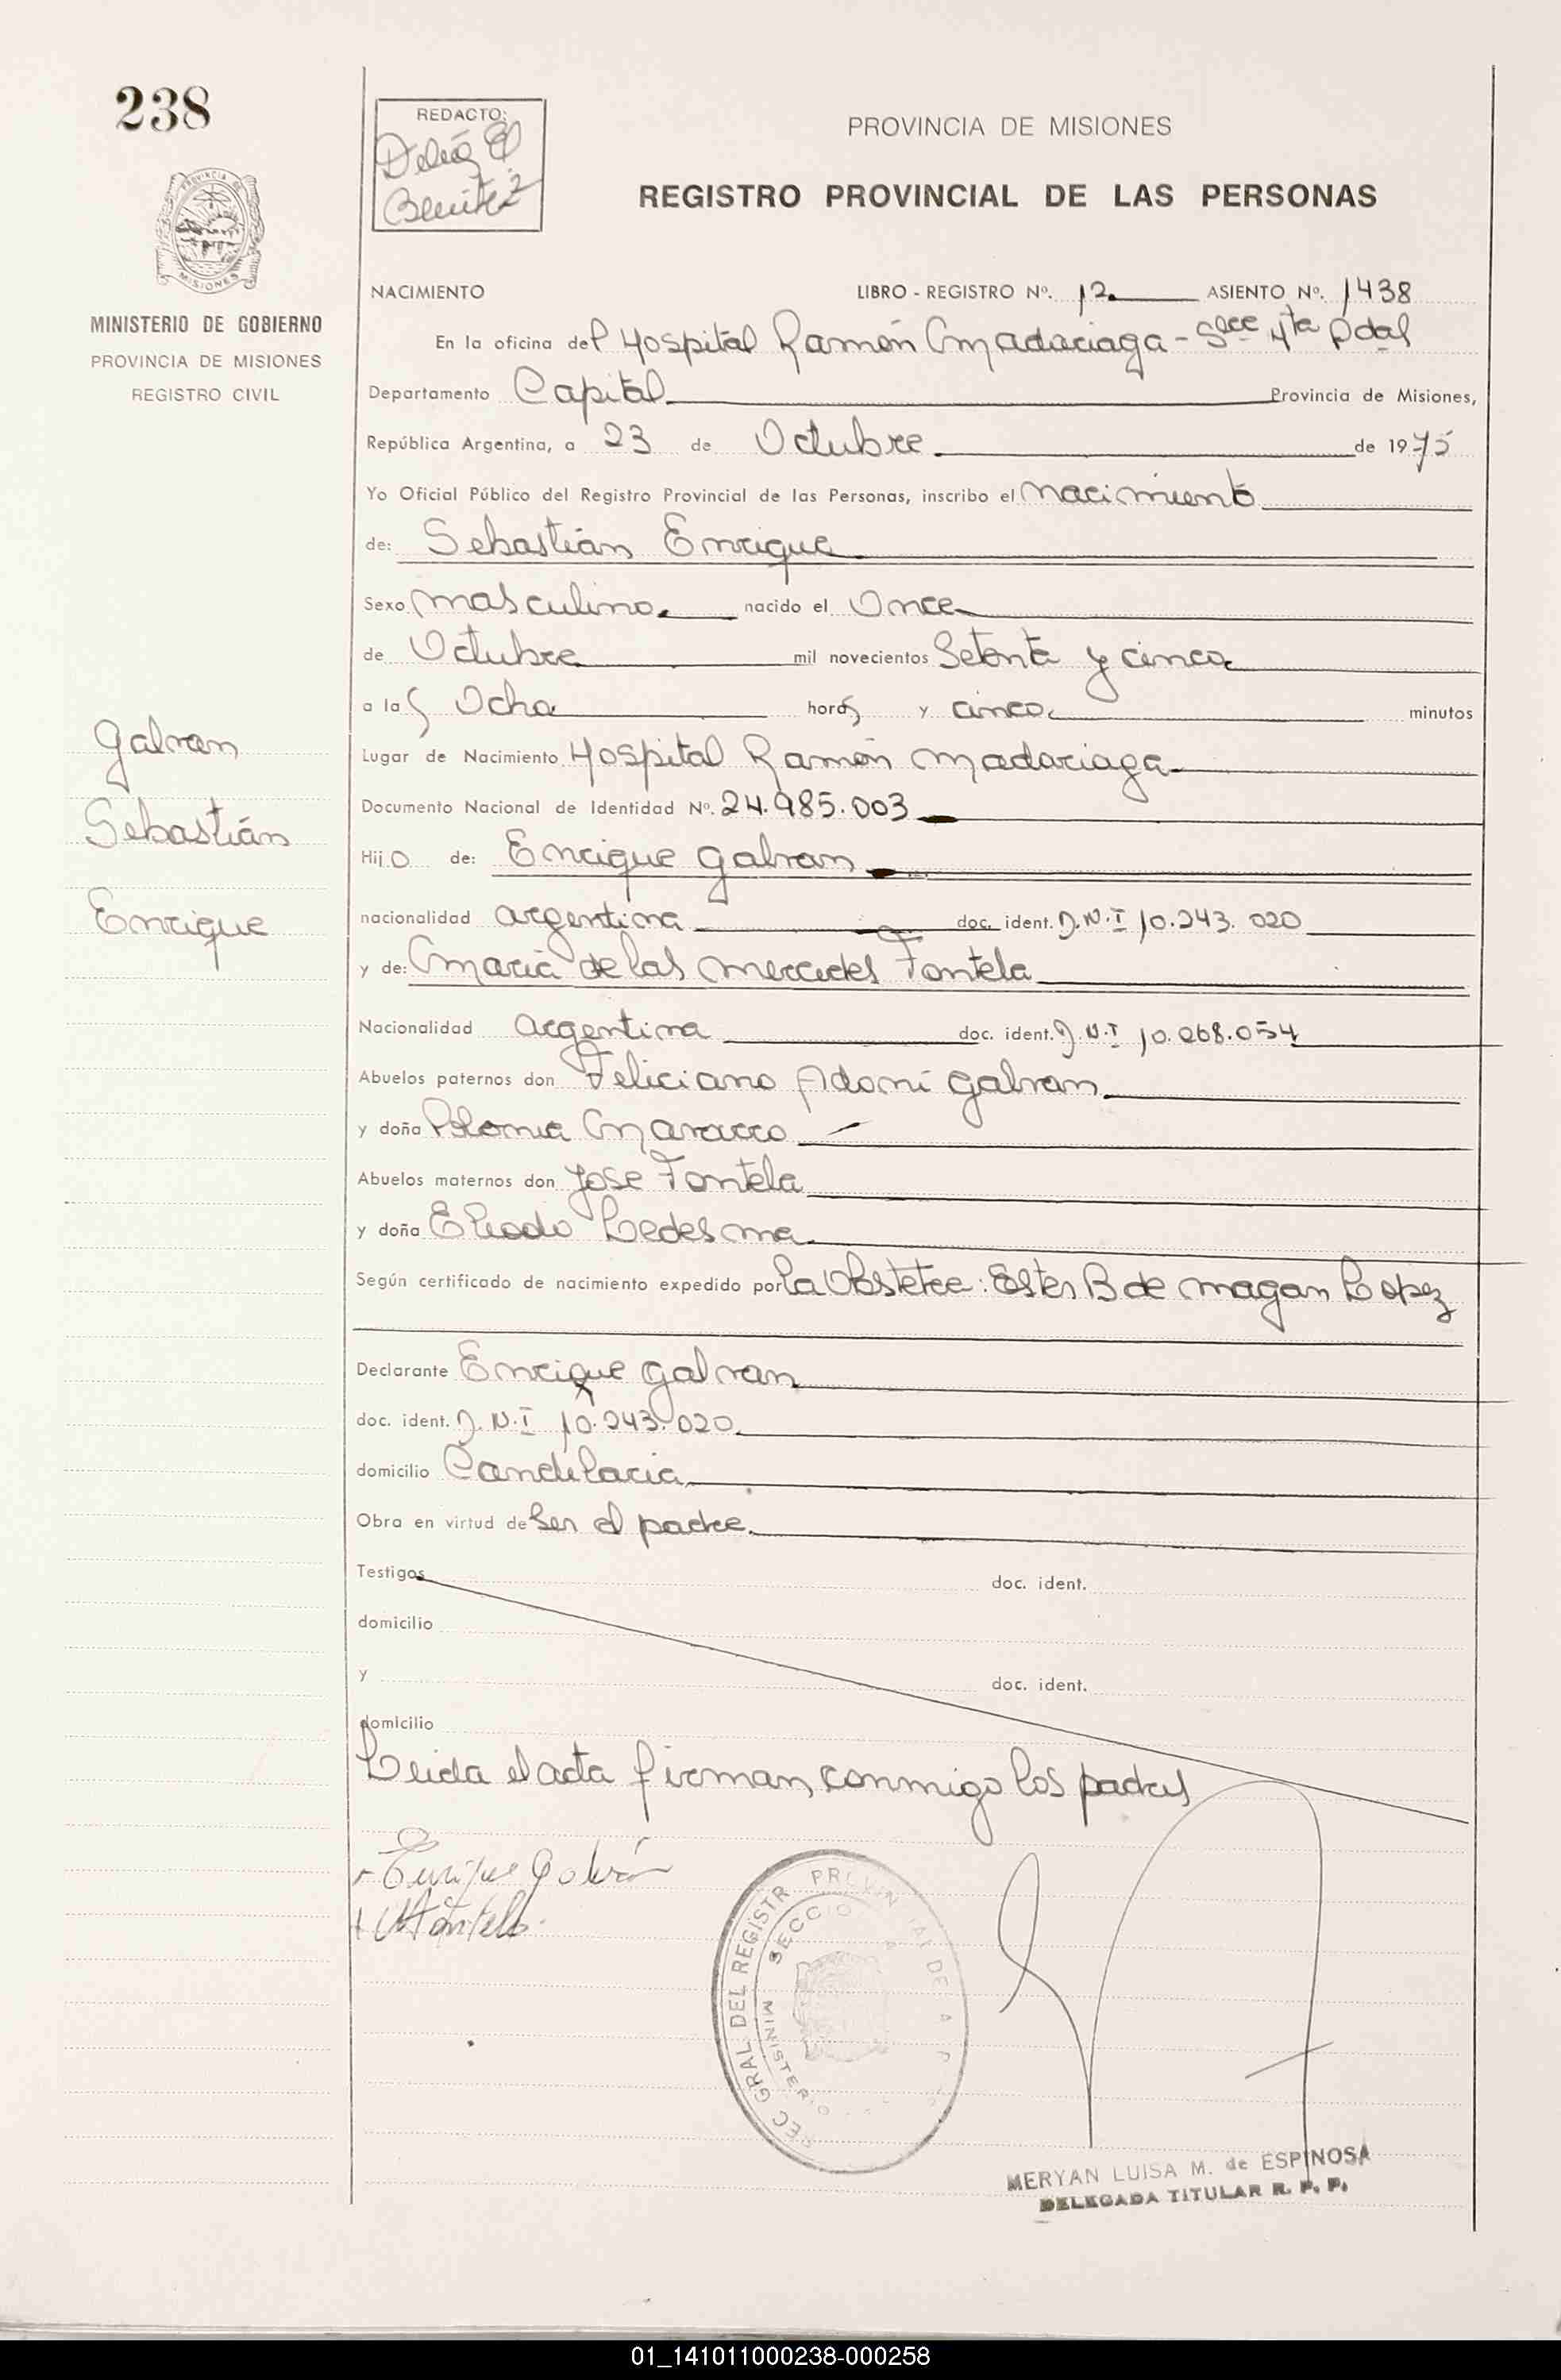 238
REDACTO:
Delia
Benitez
PROVINCIA DE MISIONES
REGISTRO PROVINCIAL DE LAS PERSONAS
MINISTERIO DE GOBIERNO
PROVINCIA DE MISIONES
REGISTRO CIVIL
NACIMIENTO LIBRO - REGISTRO Nº. 12 ASIENTO Nº. 1438
En la oficina del Hospital Ramón Madariaga - Secc 4ta Pdas
Departamento Capital Provincia de Misiones,
República Argentina, a 23 de Octubre de 1975
Yo Oficial Público del Registro Provincial de las Personas, inscribo el nacimiento
de: Sebastián Enrique
Sexo masculino nacido el Once
de Octubre mil novecientos Setenta y cinco
a las Ocho horas y cinco minutos
Lugar de Nacimiento Hospital Ramón Madariaga
Documento Nacional de Identidad Nº. 24.985.003
Hijo de: Enrique Galvan
nacionalidad argentina doc. ident. D.N.I 10.243.020
y de: Maria de las Mercedes Fontela
Nacionalidad argentina doc. ident. D.N.I 10.268.054
Abuelos paternos don Feliciano Adomi Galvan
y doña
Abuelos maternos don Jose Fontela
y doña Ledesma
Según certificado de nacimiento expedido por la Obstetra: Ester B de Magan Lopez
Declarante Enrique Galvan
doc. ident. D.N.I 10.243.020
domicilio Candelaria
Obra en virtud de Ser el padre
Testigos doc. ident.
domicilio
y doc. ident.
domicilio
Leida el acta firman conmigo los padres
Galvan
Sebastián
Enrique
Enrique Galván
M Fontela
SEC GRAL DEL REGISTR PROVIN IAL DE
SECCIO
MINISTERIO
MERYAN LUISA M. de ESPINOSA
DELEGADA TITULAR R. P. P.
01_141011000238-000258